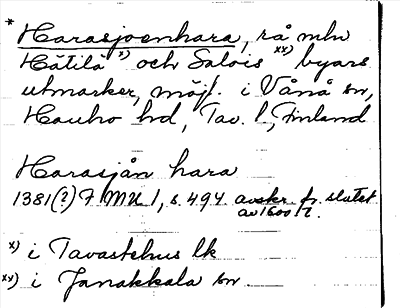 * Harasjoenhara, rå mln
Hätilä x) och Salois xx) byars
utmarker, möjl. i Vånå sn,
Hauho hd, Tav. l., Finland
Harasjån hara
1381(?) FMU 1, s. 494. avskr. fr. slutet
av 1600 t.
x) i Tavastehus lk
xx) i Janakkala sn.